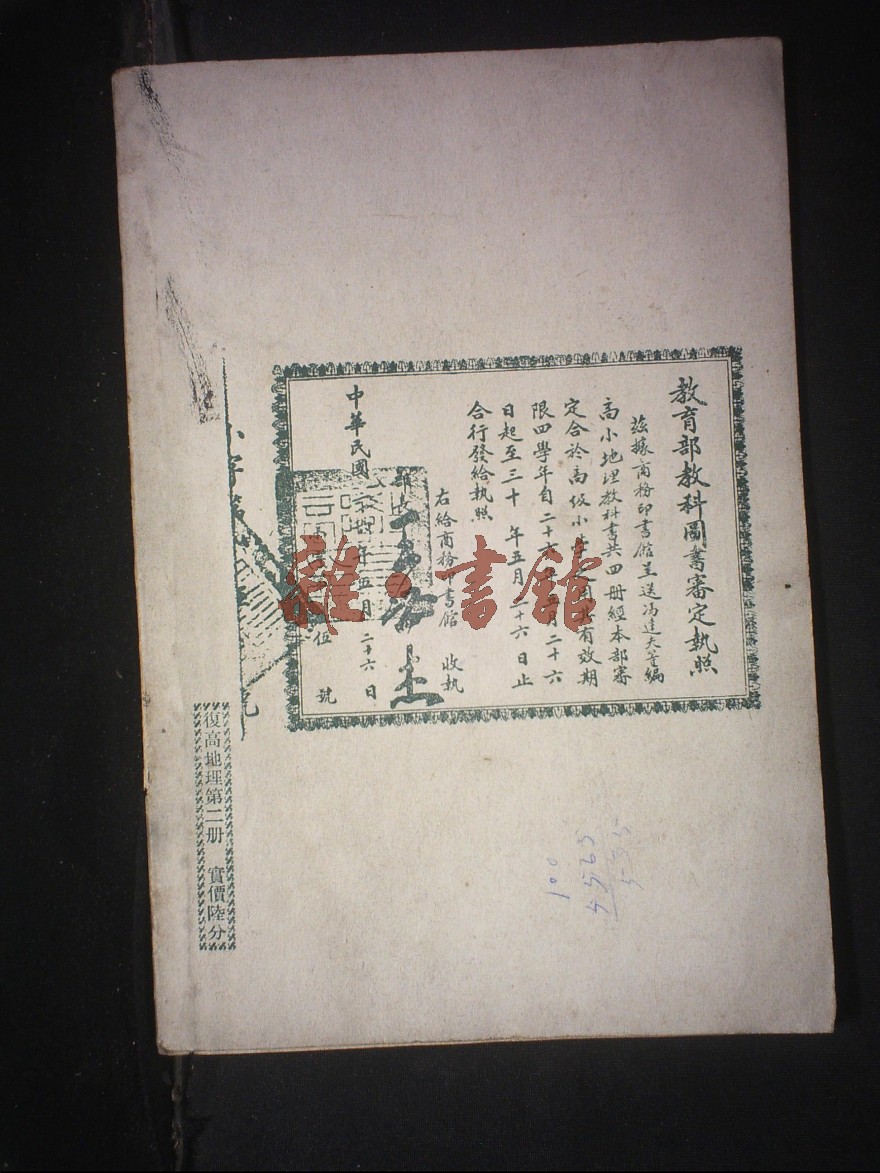 教育部教科圖書審定執照
茲據商務印書館呈送馮達夫等編
高小地理教科書共四册經本部審
定合於高級小學之用其有效期
限四學年自二十六年 月二十六
日起至三十 年五月二十六日止
合行發給執照
右給商務印書館 收執
部長
中華民國 年五月二十六日
伍 號
復高地理第二册 實價陸分
雜·書館
100